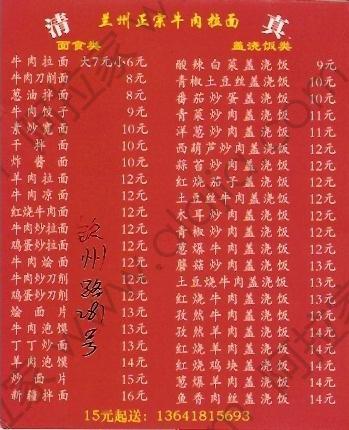 清 兰州正宗牛肉拉面 真
面食类 盖浇饭类
牛肉拉面 大7元小6元
牛肉刀削面 8元
葱油拌面 8元
牛肉饺子 9元
素炒宽面 10元
干拌面 10元
炸酱面 10元
羊肉拉面 12元
牛肉凉面 12元
红烧牛肉面 12元
牛肉炒拉面 12元
鸡蛋炒拉面 12元
牛肉烩面 12元
牛肉炒刀削 12元
鸡蛋炒刀削 12元
烩面片 13元
牛肉泡馍 13元
丁丁炒面 13元
羊肉泡馍 14元
炒面片 15元
新疆拌面 16元
酸辣白菜盖浇饭 9元
青椒土豆丝盖浇饭 10元
番茄炒蛋盖浇饭 10元
青菜炒肉盖浇饭 11元
洋葱炒肉盖浇饭 11元
西葫芦炒肉盖浇饭 12元
蒜苔炒肉盖浇饭 12元
红烧茄子盖浇饭 12元
土豆丝牛肉盖浇饭 12元
木耳炒肉盖浇饭 12元
青椒牛肉盖浇饭 12元
葱爆牛肉盖浇饭 12元
蘑菇炒肉盖浇饭 13元
土豆烧牛肉盖浇饭 13元
红烧牛肉盖浇饭 13元
孜然牛肉盖浇饭 13元
孜然羊肉盖浇饭 14元
红烧羊肉盖浇饭 14元
红烧鸡块盖浇饭 14元
葱爆羊肉盖浇饭 14元
鱼香肉丝盖浇饭 14元
钦州路
号
15元起送：13641815693